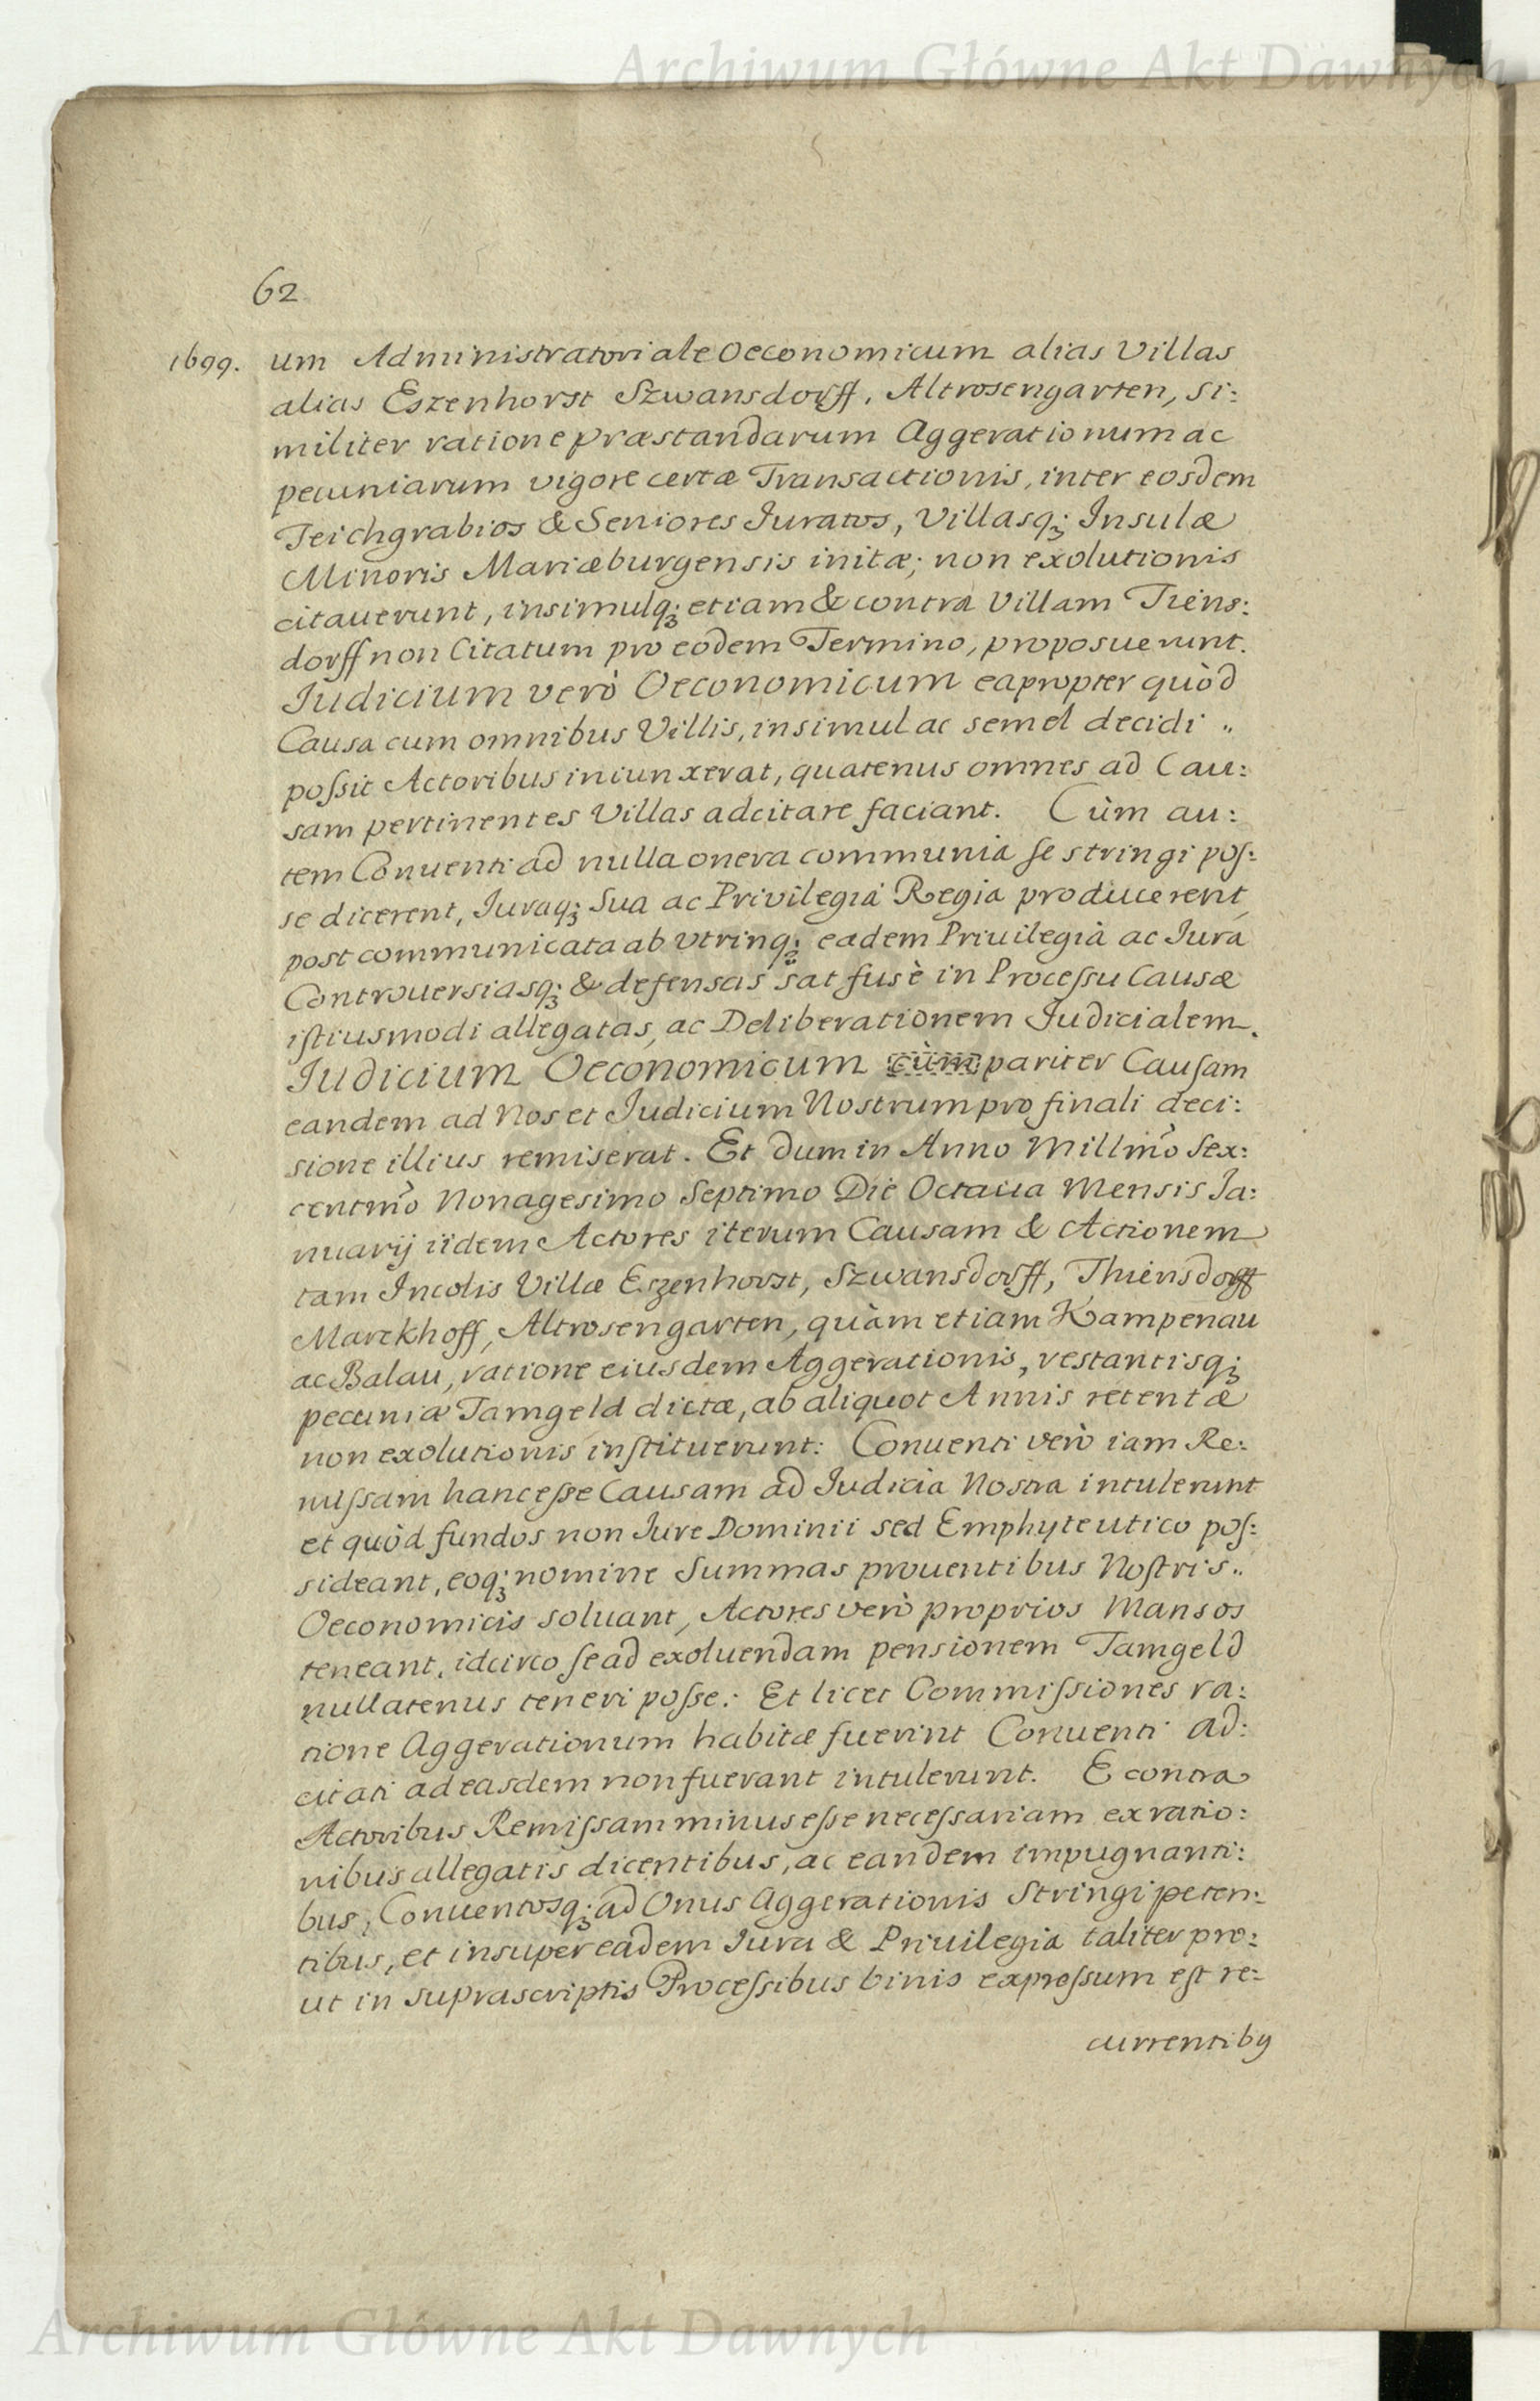 Archiwum Główne Akt Dawnych
62
1699. um Administratoriale Oeconomicum alias Villas
alias Eszenhorst Szwansdorff, Altrosengarten, si:
militer ratione præstandarum Aggerationum ac
pecuniarum vigore certæ Transactionis, inter eosdem
Teichgrabios & Seniores Iuratos, Villasq; Insulæ
Minoris Mariæburgensis initæ; non exolutionis
citauerunt, insimulq; etiam & contra Villam Tiens:
dorff non Citatum pro eodem Termino, proposuerunt.
Iudicium verò Oeconomicum eapropter quòd
Causa cum omnibus Villis, insimul ac semel decidi „
poſsit Actoribus iniunxerat, quatenus omnes ad Cau:
sam pertinentes Villas adcitare faciant. Cùm au:
tem Conuenti ad nulla onera communia se stringi poſ:
se dicerent, Iuraq; Sua ac Privilegia Regia producerent,
post communicata ab vtrinq; eadem Priuilegia ac Iura
Controuersiasq; & defensas sat fusè in Proceſsu Causæ
iſtiusmodi allegatas, ac Deliberationem Iudicialem.
Iudicium Oeconomicum cùm pariter Cauſam
eandem ad Nos et Iudicium Nostrum pro finali deci:
sione illius remiserat. Et dum in Anno Millmo Sex:
centmo Nonagesimo Septimo Die Octaua Mensis Ia:
nuarij iidem Actores iterum Causam & Actionem
tam Incolis Villæ Eszenhorst, Szwansdorff, Thiensdorff
Marckhoff, Altrosengarten, quàm etiam Kampenau
ac Balau, ratione eiusdem Aggerationis, restantisq;
pecuniæ Tamgeld dictæ, ab aliquot Annis retentæ
non exolutionis inſtituerunt: Conuenti verò iam Re:
miſsam hanc eſse Causam ad Iudicia Nostra intulerunt
et quòd fundos non Iure Dominii sed Emphyteutico poſ:
sideant, eoq; nomine Summas prouentibus Noſtris „
Oeconomicis soluant, Actores verò proprios Mansos
teneant, idcirco se ad exoluendam pensionem Tamgeld
nullatenus teneri poſse: Et licet Commiſsiones ra:
tione Aggerationum habitæ fuerint Conuenti ad:
citati ad easdem non fuerant intulerunt. E contra
Actoribus Remiſsam minus eſse neceſsariam ex ratio:
nibus allegatis dicentibus, ac eandem impugnanti:
bus, Conuentosq; ad Onus Aggerationis Stringi peten:
tibus, et insuper eadem Iura & Priuilegia taliter pro:
ut in suprascriptis Proceſsibus binis expreſsum eſt re:
currentibꝰ
Archiwum Główne Akt Dawnych